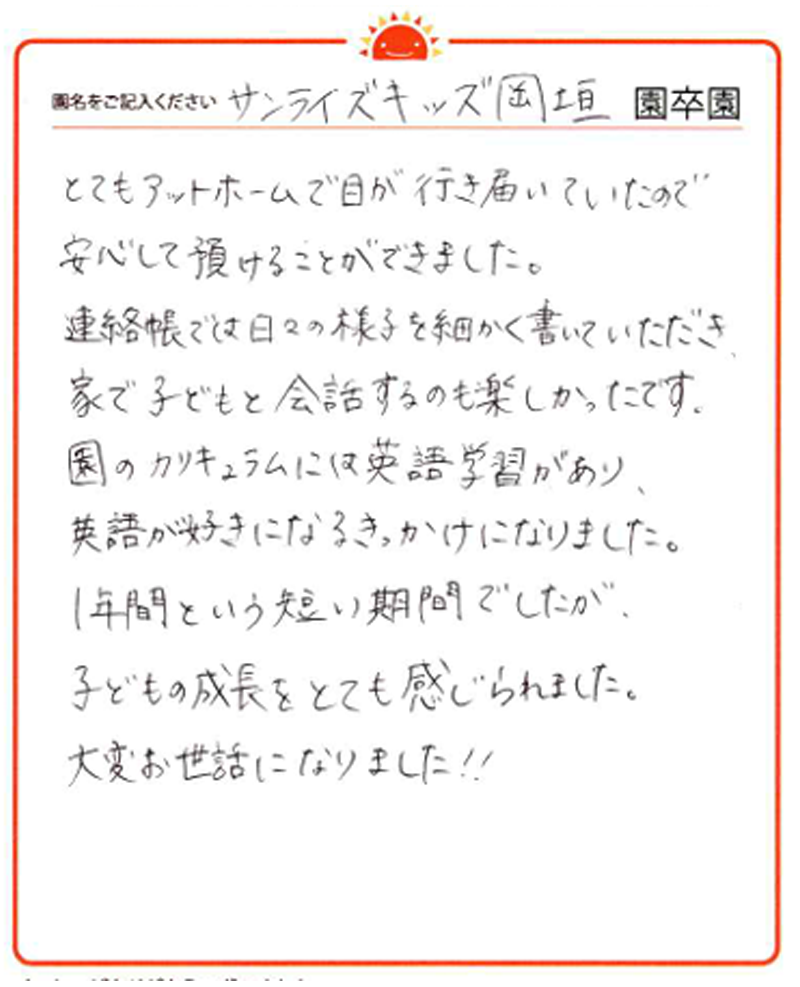 園名をご記入ください サンライズキッズ岡垣 園卒園
とてもアットホームで目が行き届いていたので
安心して預けることができました。
連絡帳では日々の様子を細かく書いていただき、
家で子どもと会話するのも楽しかったです。
園のカリキュラムには英語学習があり、
英語が好きになるきっかけになりました。
1年間という短い期間でしたが、
子どもの成長をとても感じられました。
大変お世話になりました!!